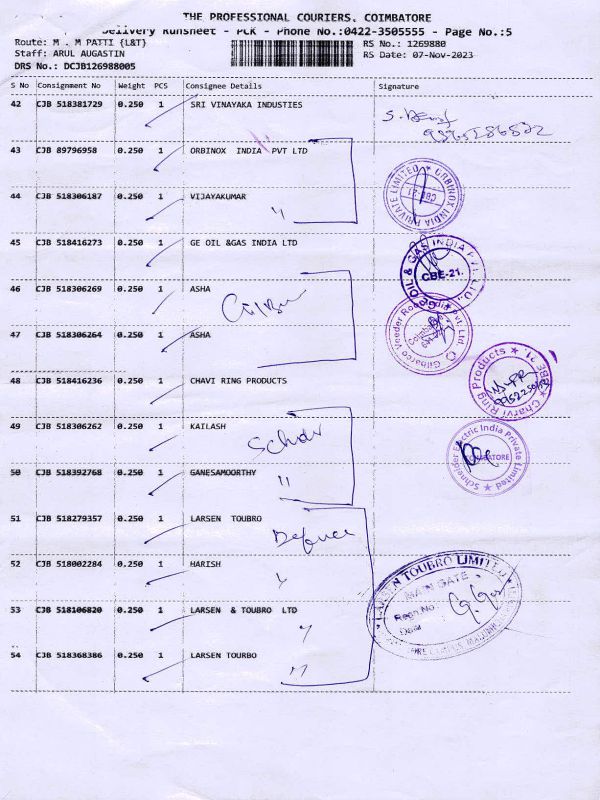 THE PROFESSIONAL COURIERS, COIMBATORE
Delivery Runsheet - PCK - Phone No.:0422-3505555 - Page No.:5
Route: M . M PATTI {L&T}
RS No.: 1269880
Staff: ARUL AUGASTIN
RS Date: 07-Nov-2023
DRS No.: DCJB126988005
S No Consignment No Weight PCS Consignee Details Signature
42 CJB 518381729 0.250 1 SRI VINAYAKA INDUSTIES
43 CJB 89796958 0.250 1 ORBINOX INDIA PVT LTD
44 CJB 518306187 0.250 1 VIJAYAKUMAR
"
ORBINOX INDIA PRIVATE LIMITED
CBE-21
45 CJB 518416273 0.250 1 GE OIL &GAS INDIA LTD
GE OIL & GAS INDIA PVT. LTD.
CBE-21.
46 CJB 518306269 0.250 1 ASHA
47 CJB 518306264 0.250 1 ASHA
Gilbarco Veeder Root India Pvt Ltd
48 CJB 518416236 0.250 1 CHAVI RING PRODUCTS
Charvi Ring Products
CBE 21.
49 CJB 518306262 0.250 1 KAILASH
50 CJB 518392768 0.250 1 GANESAMOORTHY
"
Schneider Electric India Private Limited
51 CJB 518279357 0.250 1 LARSEN TOUBRO
Defence
52 CJB 518002284 0.250 1 HARISH
53 CJB 518106820 0.250 1 LARSEN & TOUBRO LTD
54 CJB 518368386 0.250 1 LARSEN TOURBO
LARSEN TOUBRO LIMITED
MAIN GATE
Regn No
Date